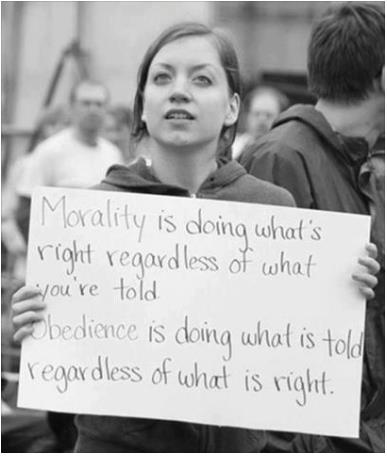 Morality is doing what's
right regardless of what
you're told
Obedience is doing what is told
regardless of what is right.